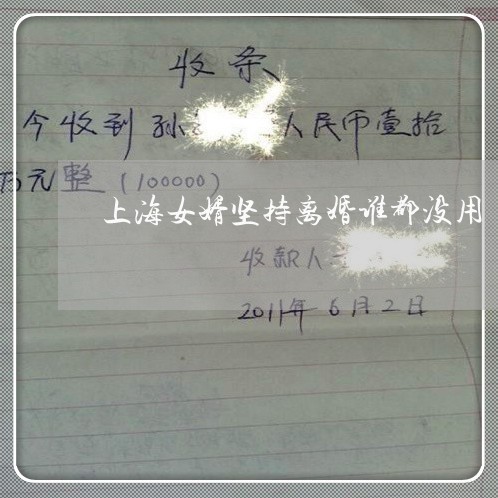 收条
今收到孙 人民币壹拾
万元整(100000)
上海女婿坚持离婚谁都没用
收款人
2011年6月2日